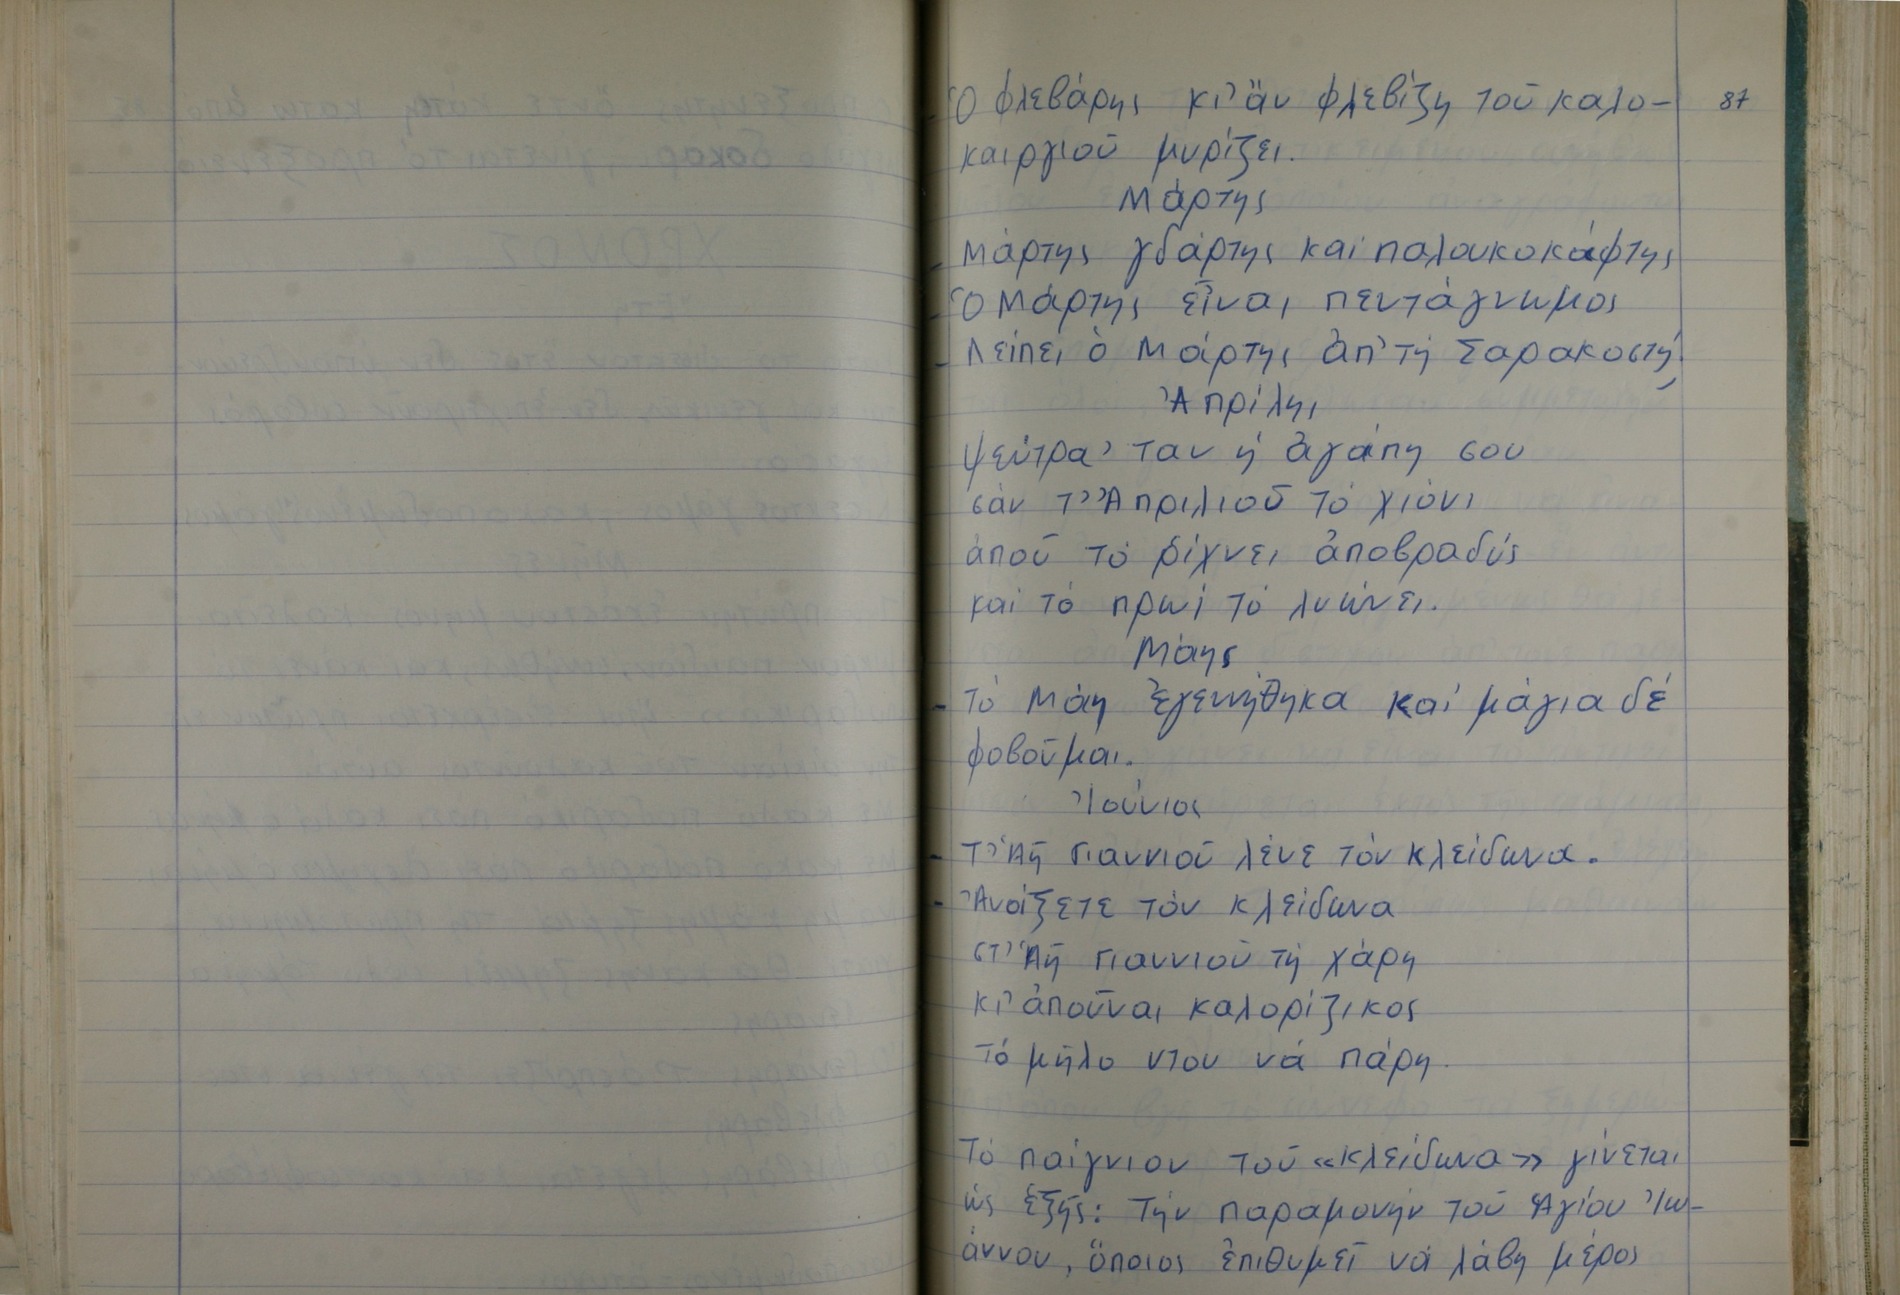 - Ὁ φλεβάρης κι' ἄν φλεβίζη τοῦ καλο- 87
καιργιοῦ μυρίζει.
Μάρτης
- Μάρτης γδάρτης καί παλουκοκάφτης
- Ὁ Μάρτης εἶναι πεντάγνωμος
- Λείπει ὁ Μάρτης ἀπ' τή Σαρακοστή;
Ἀπρίλης
ψεύτρα' ταν ἡ ἀγάπη σου
σάν τ' Ἀπριλιοῦ τό χιόνι
ἀποῦ τό ρίχνει ἀποβραδύς
καί τό πρωί τό λυώνει.
Μάης
- Τό Μάη ἐγεννήθηκα καί μάγια δέ
φοβοῦμαι.
Ἰούνιος
- Τ' Ἁῆ Γιαννιοῦ λένε τόν κλείδωνα.
- Ἀνοίξετε τόν κλείδωνα
στ' Ἁῆ Γιαννιοῦ τή χάρη
κι' ἀποῦναι καλορίζικος
τό μῆλο ντου νά πάρη.
Τό παίγνιον τοῦ «κλείδωνα» γίνεται
ὡς ἑξῆς: Τήν παραμονήν τοῦ Ἁγίου Ἰω-
άννου, ὅποιος ἐπιθυμεῖ νά λάβη μέρος